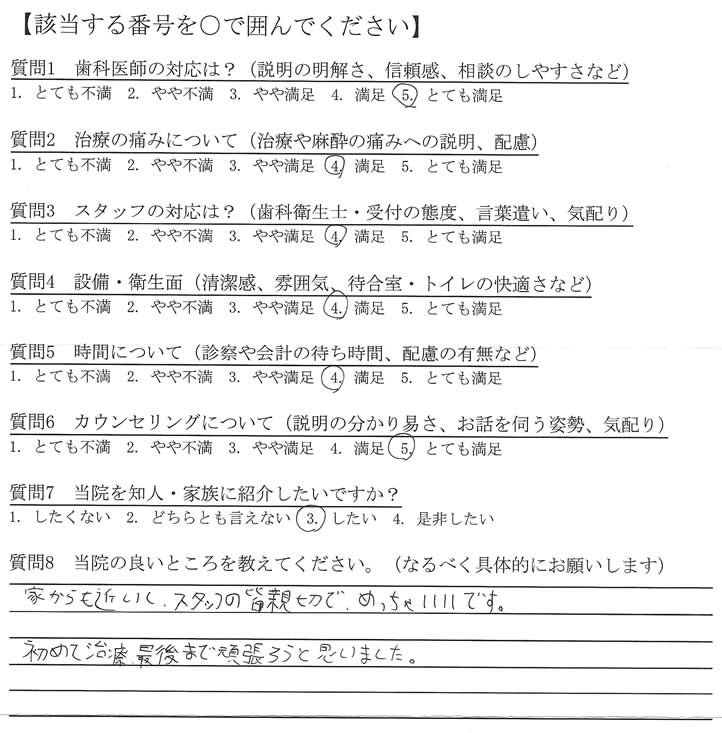 【該当する番号を〇で囲んでください】
質問1　歯科医師の対応は？（説明の明解さ、信頼感、相談のしやすさなど）
1. とても不満　2. やや不満　3. やや満足　4. 満足　5. とても満足
質問2　治療の痛みについて（治療や麻酔の痛みへの説明、配慮）
1. とても不満　2. やや不満　3. やや満足　4. 満足　5. とても満足
質問3　スタッフの対応は？（歯科衛生士・受付の態度、言葉遣い、気配り）
1. とても不満　2. やや不満　3. やや満足　4. 満足　5. とても満足
質問4　設備・衛生面（清潔感、雰囲気、待合室・トイレの快適さなど）
1. とても不満　2. やや不満　3. やや満足　4. 満足　5. とても満足
質問5　時間について（診察や会計の待ち時間、配慮の有無など）
1. とても不満　2. やや不満　3. やや満足　4. 満足　5. とても満足
質問6　カウンセリングについて（説明の分かり易さ、お話を伺う姿勢、気配り）
1. とても不満　2. やや不満　3. やや満足　4. 満足　5. とても満足
質問7　当院を知人・家族に紹介したいですか？
1. したくない　2. どちらとも言えない　3. したい　4. 是非したい
質問8　当院の良いところを教えてください。（なるべく具体的にお願いします）
家からも近いし、スタッフの皆親切で、めっちゃいいです。
初めて治療、最後まで頑張ろうと思いました。